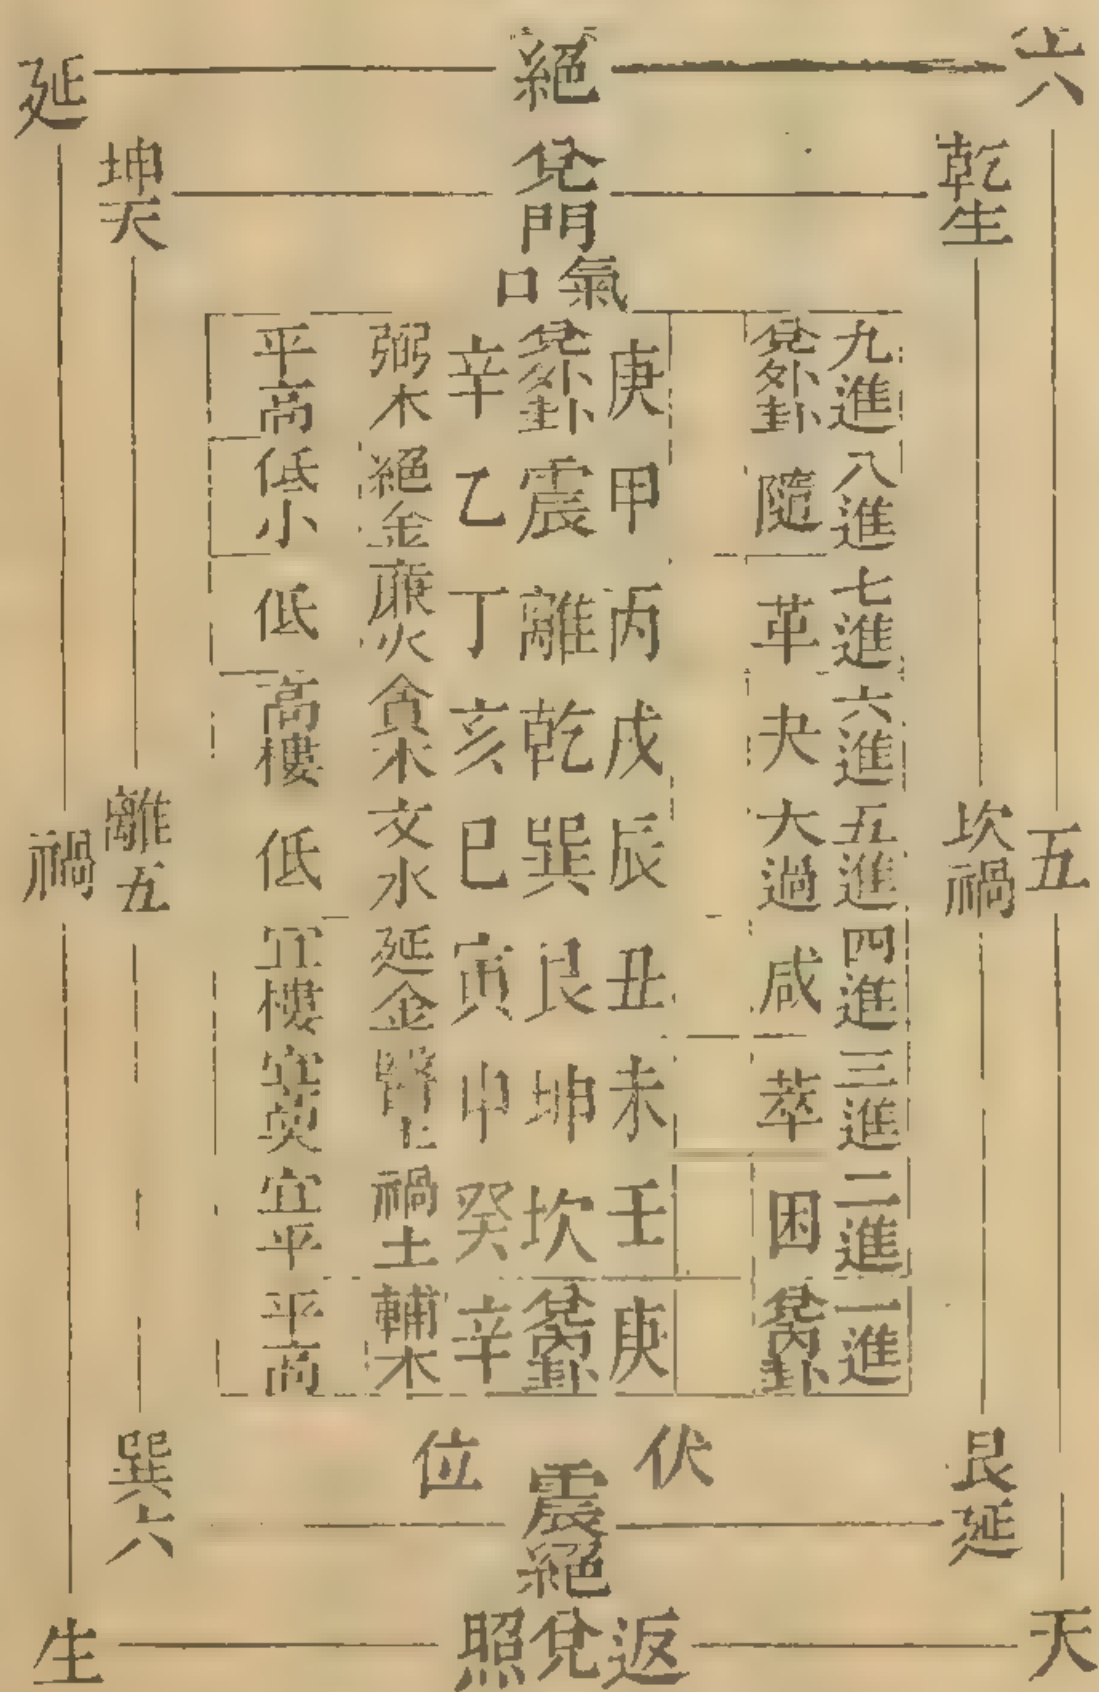 六 絕 延
乾生 兌門 坤天
氣口
九進 八進 七進 六進 五進 四進 三進 二進 一進
兌外卦 隨 革 夬 大過 咸 萃 困 兌內卦
庚 甲 丙 戌 辰 丑 未 壬 庚
兌外卦 震 離 乾 巽 艮 坤 坎 兌內卦
辛 乙 丁 亥 巳 寅 申 癸 辛
弼木 絕金 廉火 貪木 文水 延金 土 禍土 輔木
平高 低小 低 高樓 低 宜樓 宜 宜平 平高
五 坎禍 離五 禍
艮延 伏位 巽六
震絕
天 返兌照 生